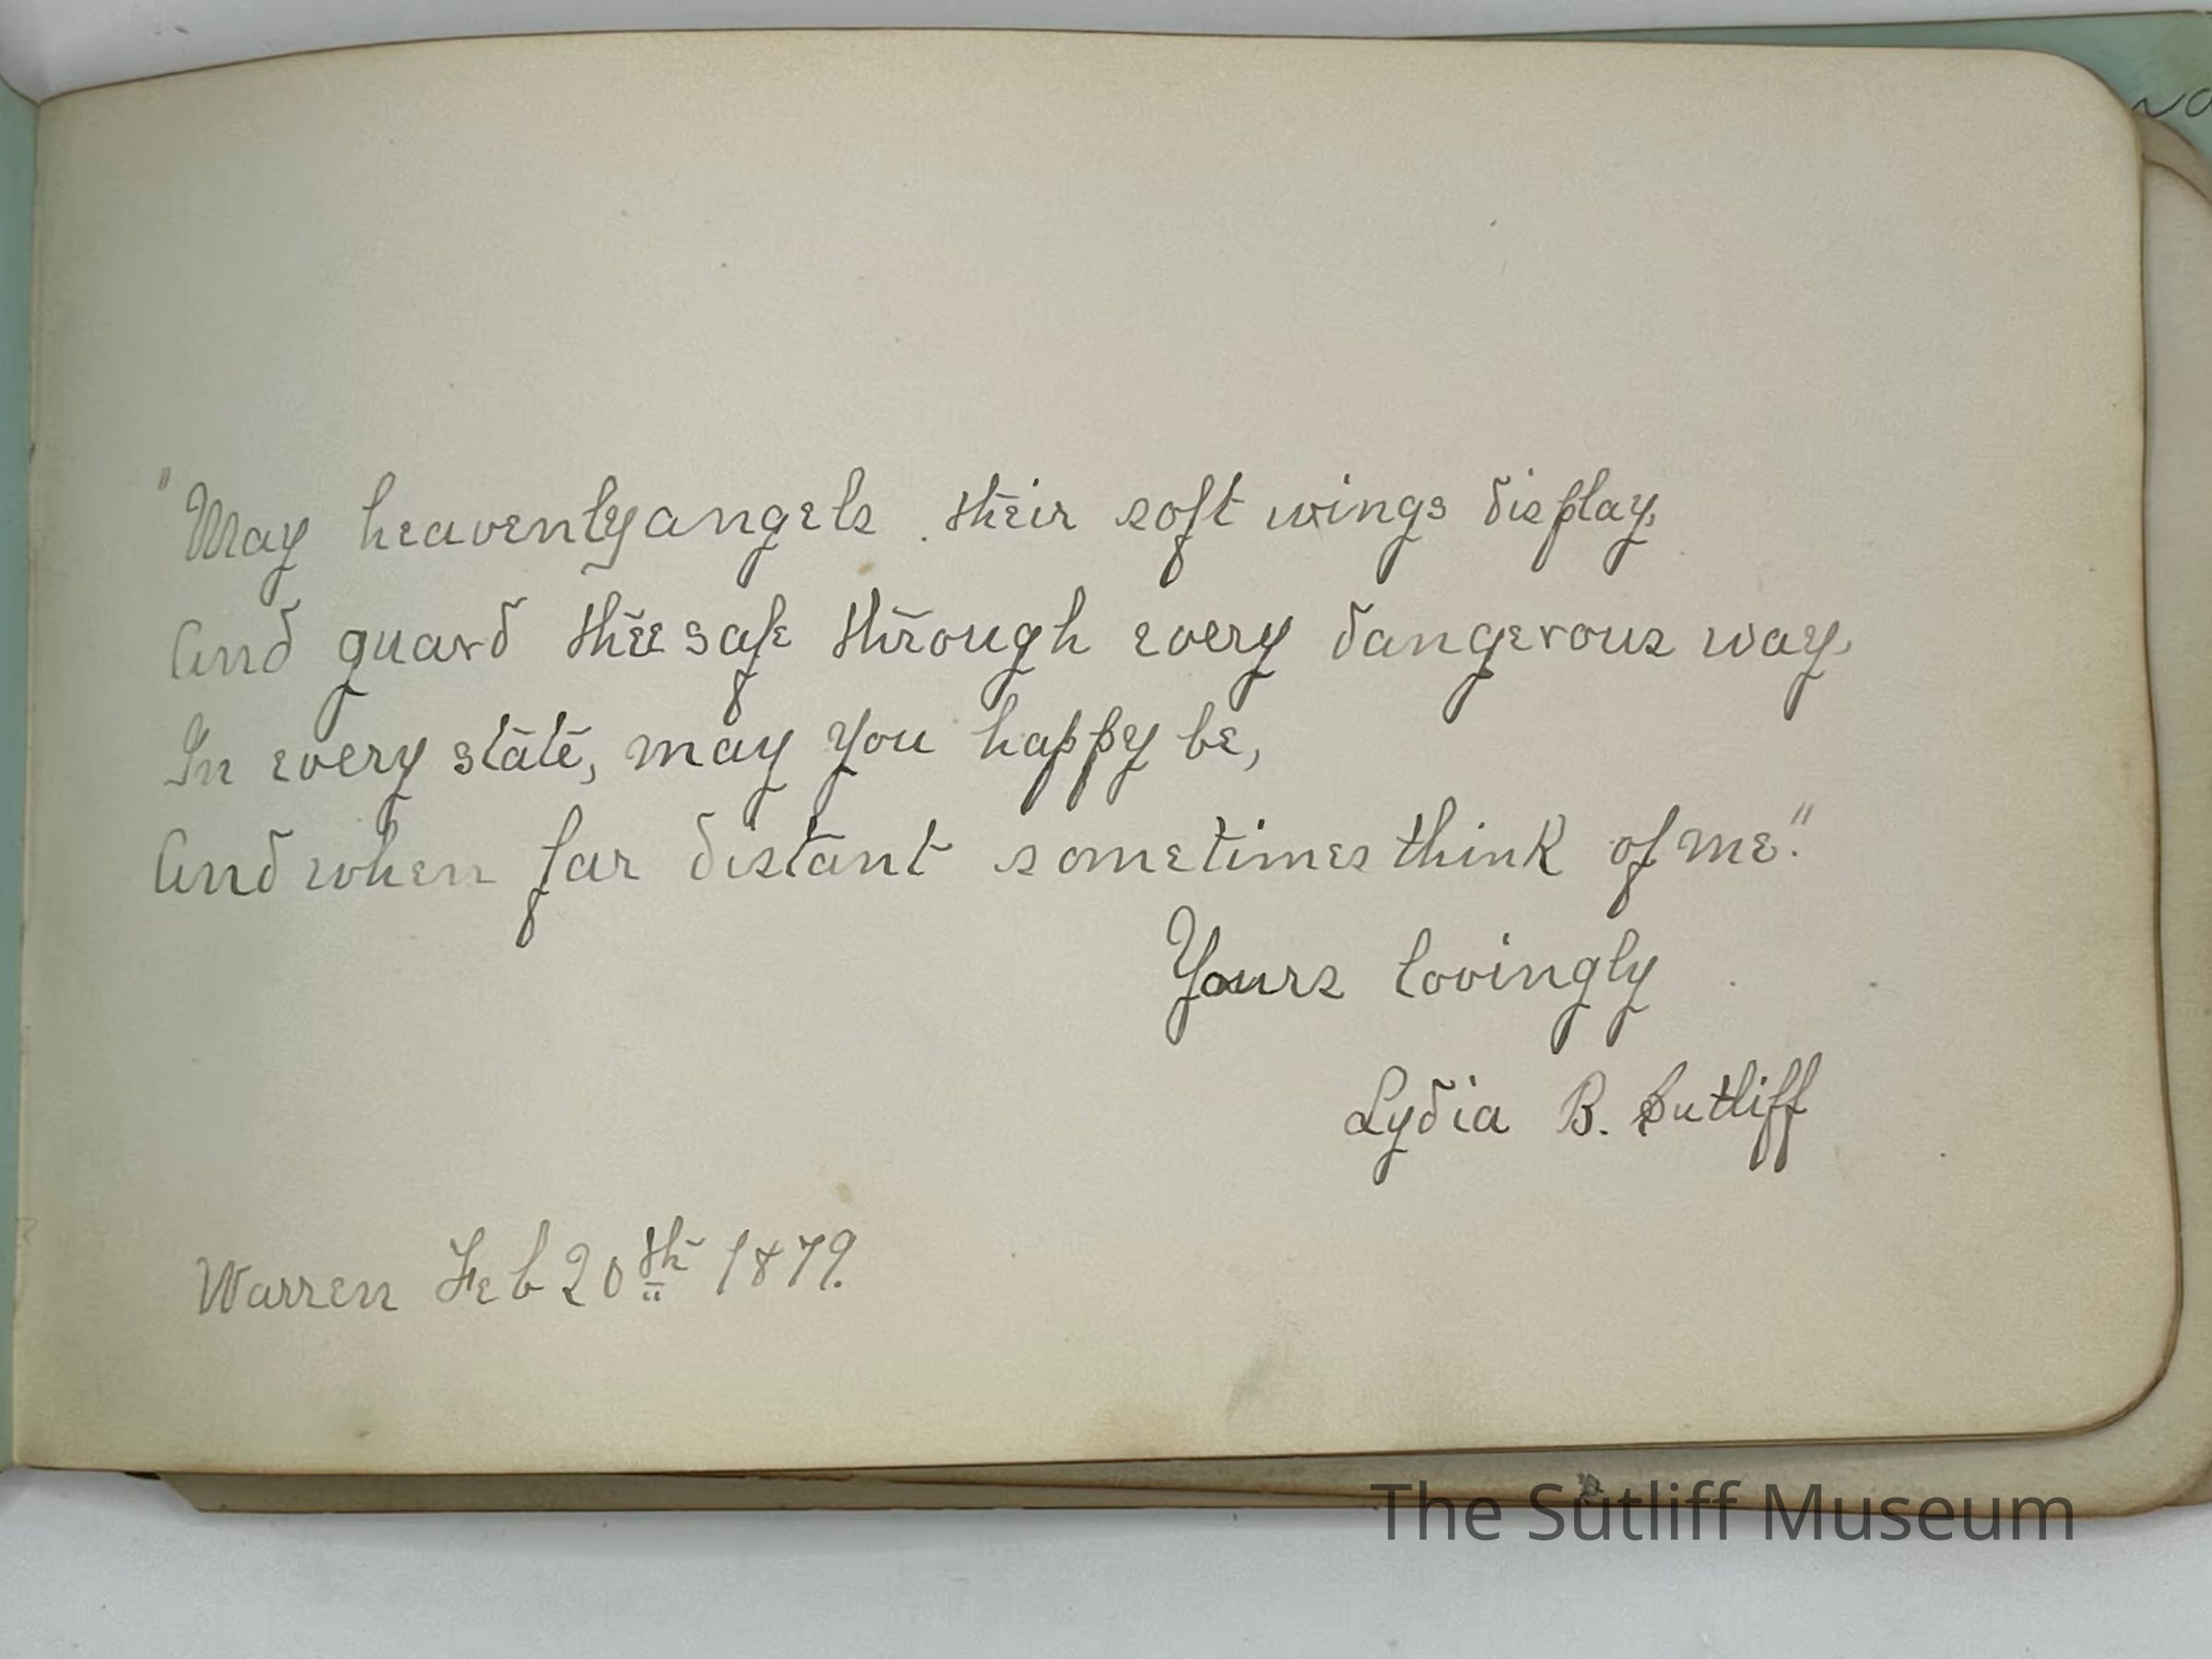 "May heavenly angels their soft wings display,
And guard thee safe through every dangerous way.
In every state, may you happy be,
And when far distant sometimes think of me."
Yours lovingly
Lydia B. Sutliff
Warren Feb 20th 1879.
The Sutliff Museum